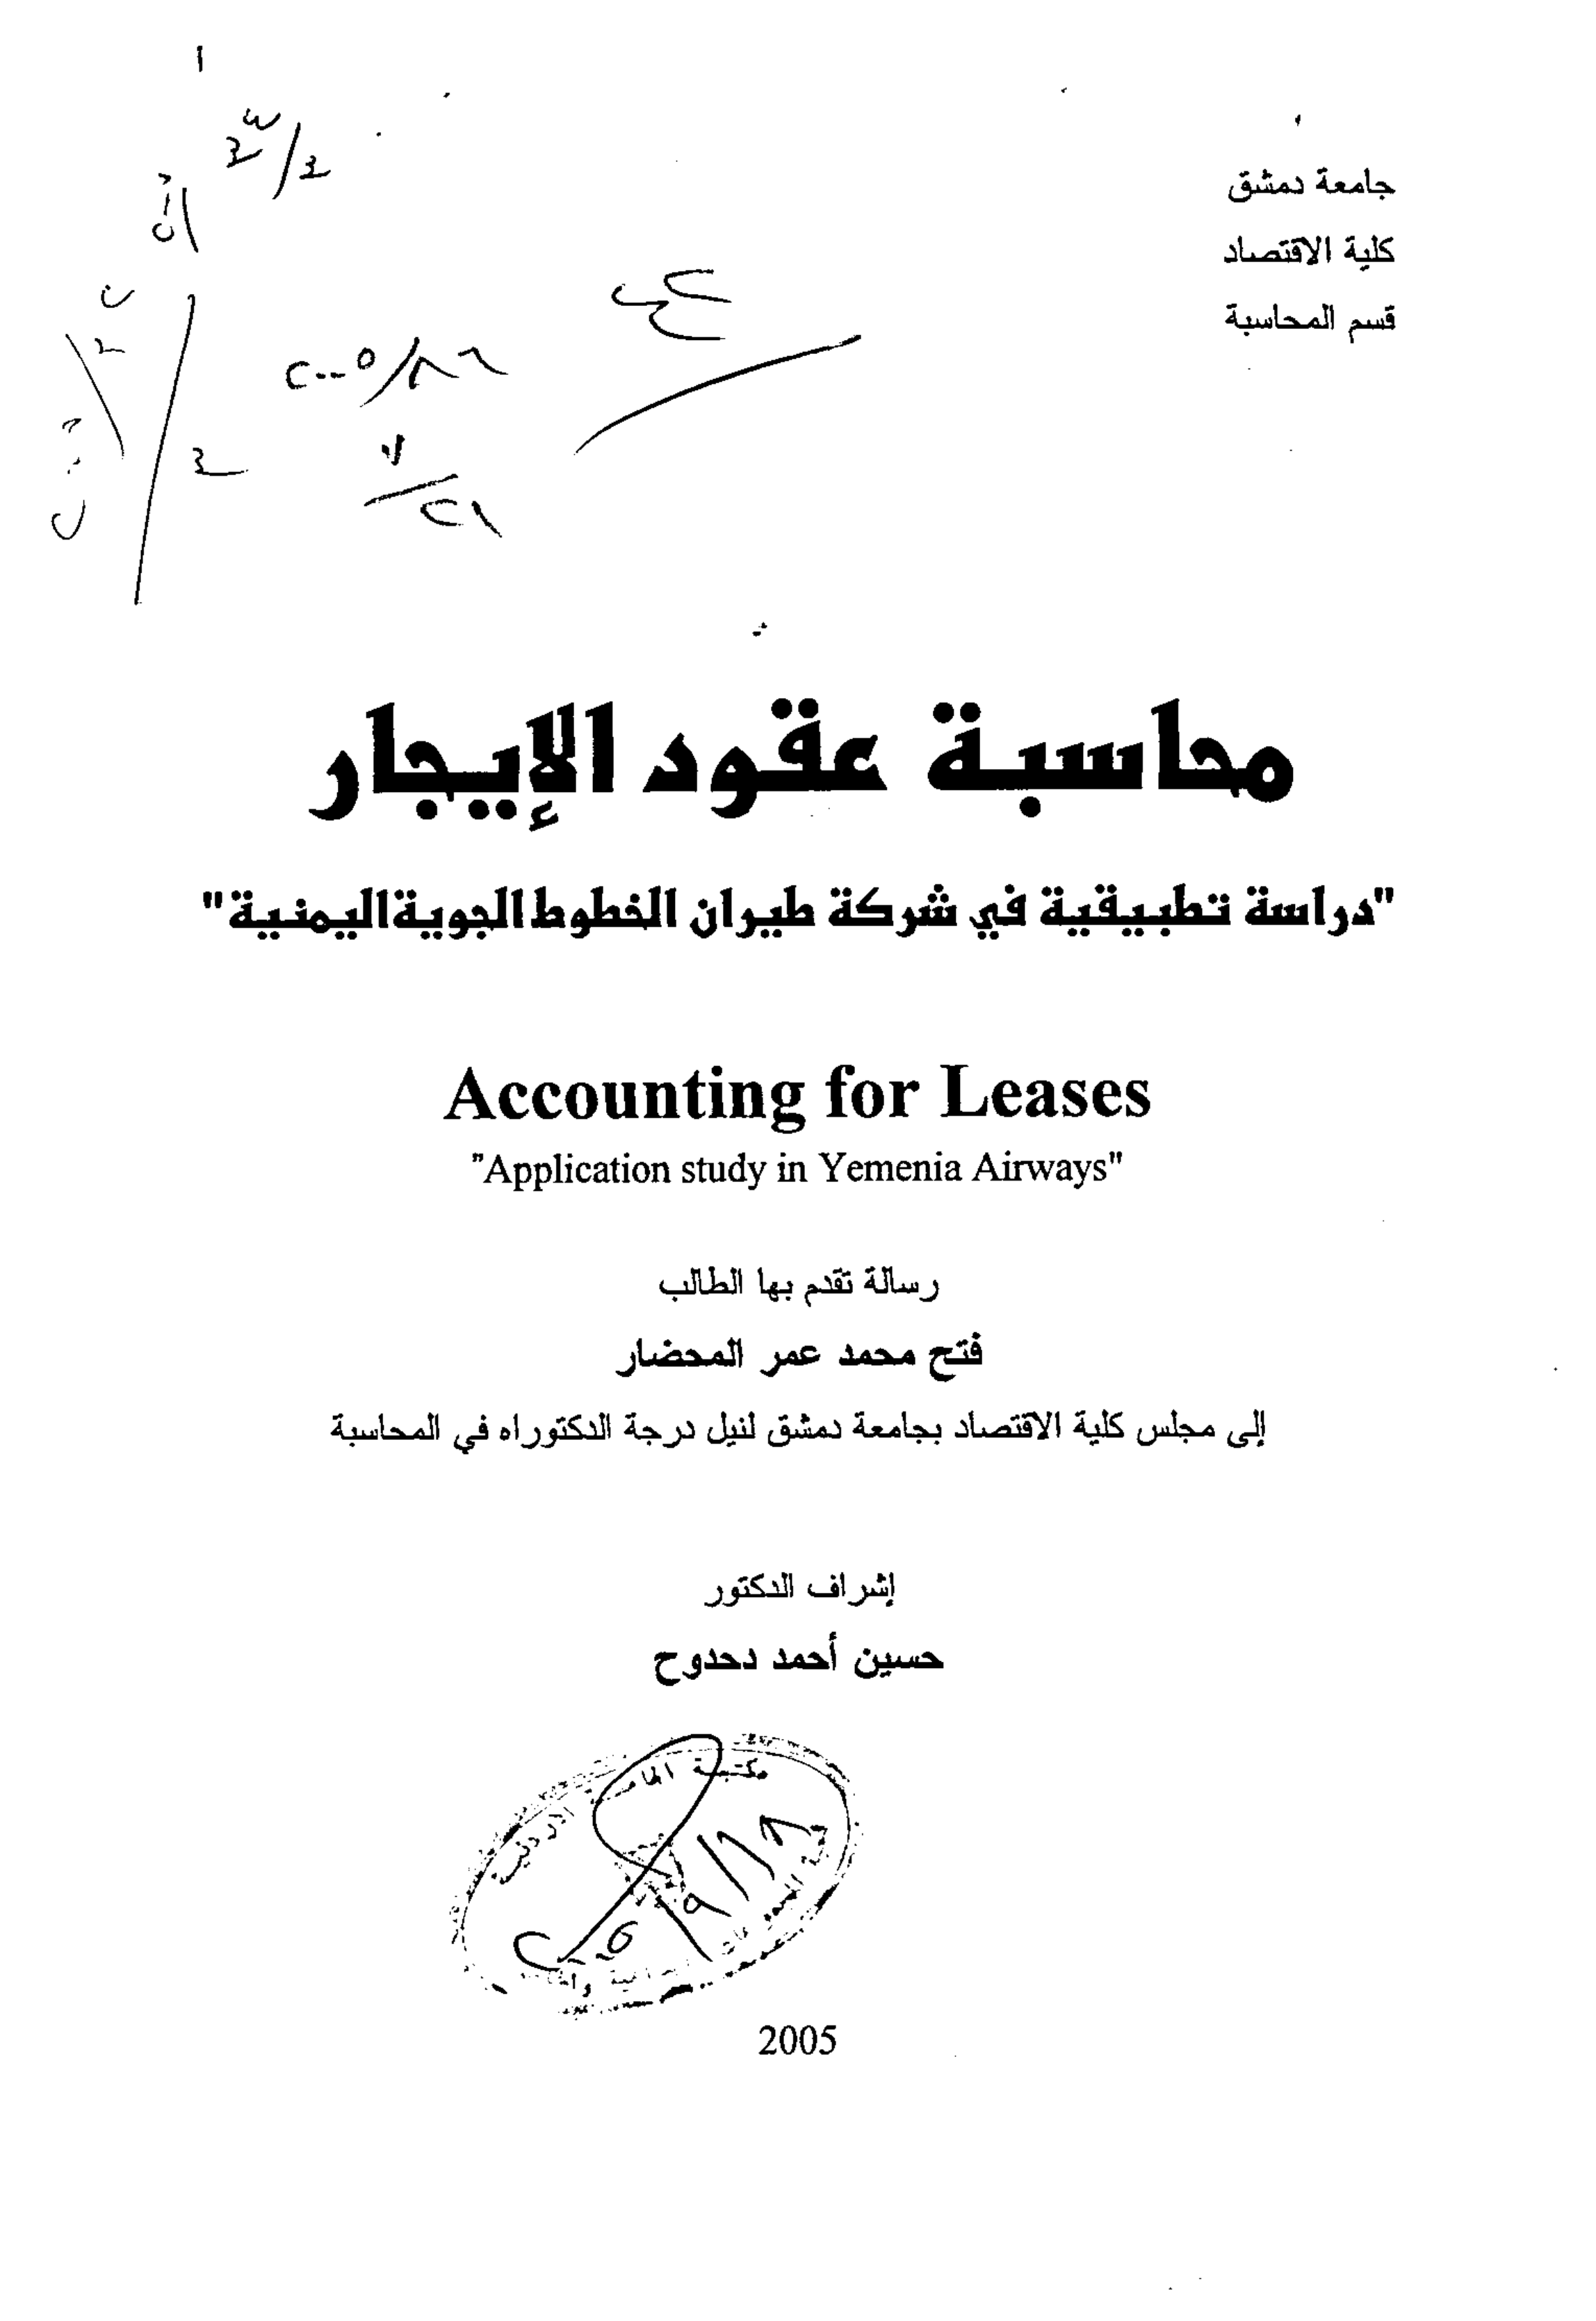 أ
جامعة دمشق
كلية الاقتصاد
قسم المحاسبة
محاسبة عقود الإيجار
"دراسة تطبيقية في شركة طيران الخطوط الجوية اليمنية"
Accounting for Leases
"Application study in Yemenia Airways"
رسالة تقدم بها الطالب
فتح محمد عمر المحضار
إلى مجلس كلية الاقتصاد بجامعة دمشق لنيل درجة الدكتوراه في المحاسبة
إشراف الدكتور
حسين أحمد دحدوح
مكتبة الجامعة الاردنية
2005